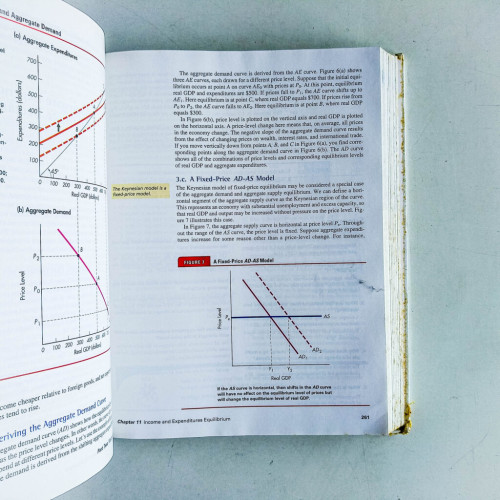 and Aggregate Demand
(a) Aggregate Expenditures
Expenditures (dollars)
700
600
500
400
300
200
100
45°
0 100 200 300 400 500 6
Real GDP (dollars)
(b) Aggregate Demand
Price Level
P2
P0
P1
B
A
0 100 200 300 400 500
Real GDP (dollars)
come cheaper relative to foreign goods, and net
es tend to rise.
eriving the Aggregate Demand Curve
The aggregate demand curve is derived from the AE curve. Figure 6(a) shows
three AE curves, each drawn for a different price level. Suppose that the initial equi-
librium occurs at point A on curve AE0 with prices at P0. At this point, equilibrium
real GDP and expenditures are $500. If prices fall to P1, the AE curve shifts up to
AE1. Here equilibrium is at point C, where real GDP equals $700. If prices rise from
P0 to P2, the AE curve falls to AE2. Here equilibrium is at point B, where real GDP
equals $300.
In Figure 6(b), price level is plotted on the vertical axis and real GDP is plotted
on the horizontal axis. A price-level change here means that, on average, all prices
in the economy change. The negative slope of the aggregate demand curve results
from the effect of changing prices on wealth, interest rates, and international trade.
If you move vertically down from points A, B, and C in Figure 6(a), you find corre-
sponding points along the aggregate demand curve in Figure 6(b). The AD curve
shows all of the combinations of price levels and corresponding equilibrium levels
of real GDP and aggregate expenditures.
3.c. A Fixed-Price AD–AS Model
The Keynesian model is a
fixed-price model.
The Keynesian model of fixed-price equilibrium may be considered a special case
of the aggregate demand and aggregate supply equilibrium. We can define a hori-
zontal segment of the aggregate supply curve as the Keynesian region of the curve.
This represents an economy with substantial unemployment and excess capacity, so
that real GDP and output may be increased without pressure on the price level. Fig-
ure 7 illustrates this case.
In Figure 7, the aggregate supply curve is horizontal at price level Pe. Through-
out the range of the AS curve, the price level is fixed. Suppose aggregate expendi-
tures increase for some reason other than a price-level change. For instance,
FIGURE 7 A Fixed-Price AD–AS Model
Price Level
Pe
AS
AD2
AD1
Y1 Y2
Real GDP
If the AS curve is horizontal, then shifts in the AD curve
will have no effect on the equilibrium level of prices but
will change the equilibrium level of real GDP.
Chapter 11 Income and Expenditures Equilibrium 261